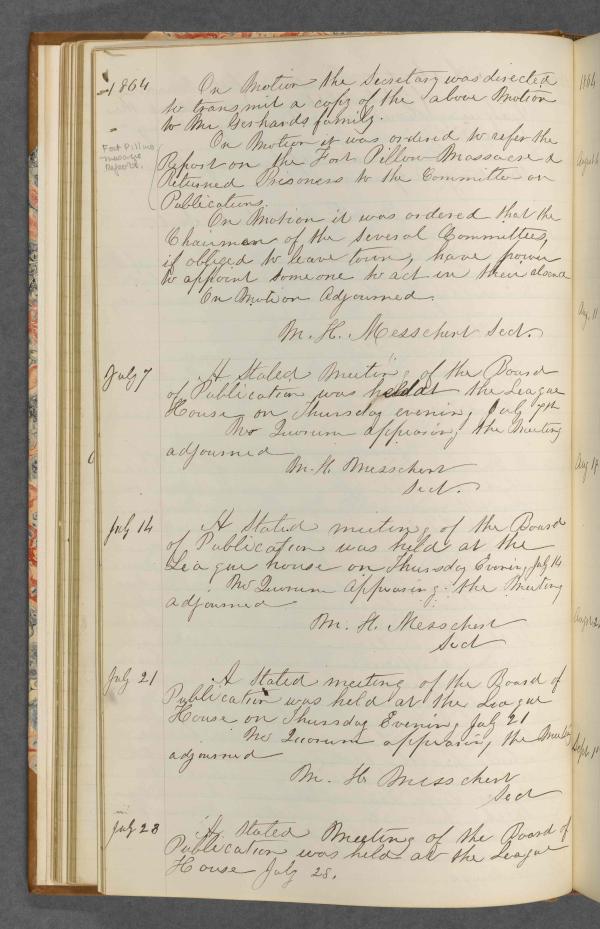 1864
On Motion the Secretary was directed
to transmit a copy of the above Motion
to Mr Gerhards family.
On Motion it was ordered to refer the
Report on the Fort Pillow Massacre &
Returned Prisoners to the Committee on
Publications.
Fort Pillow
massacre
Reports.
On Motion it was ordered that the
Chairman of the several Committees,
if obliged to leave town, have power
to appoint some one to act in their absence
On Motion Adjourned
M. H. Messchert Sect.
July 7
A Stated Meeting of the Board
of Publication was held at the League
House on Thursday evening July 7th
No Quorum appearing the Meeting
adjourned
M. H. Messchert
Sect.
July 14
A Stated meeting of the Board
of Publication was held at the
League house on Thursday Evening July 14
No Quorum appearing the Meeting
adjourned
M. H. Messchert
Sect
July 21
A Stated meeting of the Board of
Publication was held at the League
House on Thursday Evening July 21
No Quorum appearing the Meeting
adjourned
M. H. Messchert
Sect
July 28
A Stated Meeting of the Board of
Publication was held at the League
House July 28.
1864
August
Aug. 11
Aug 17
Sept 1st